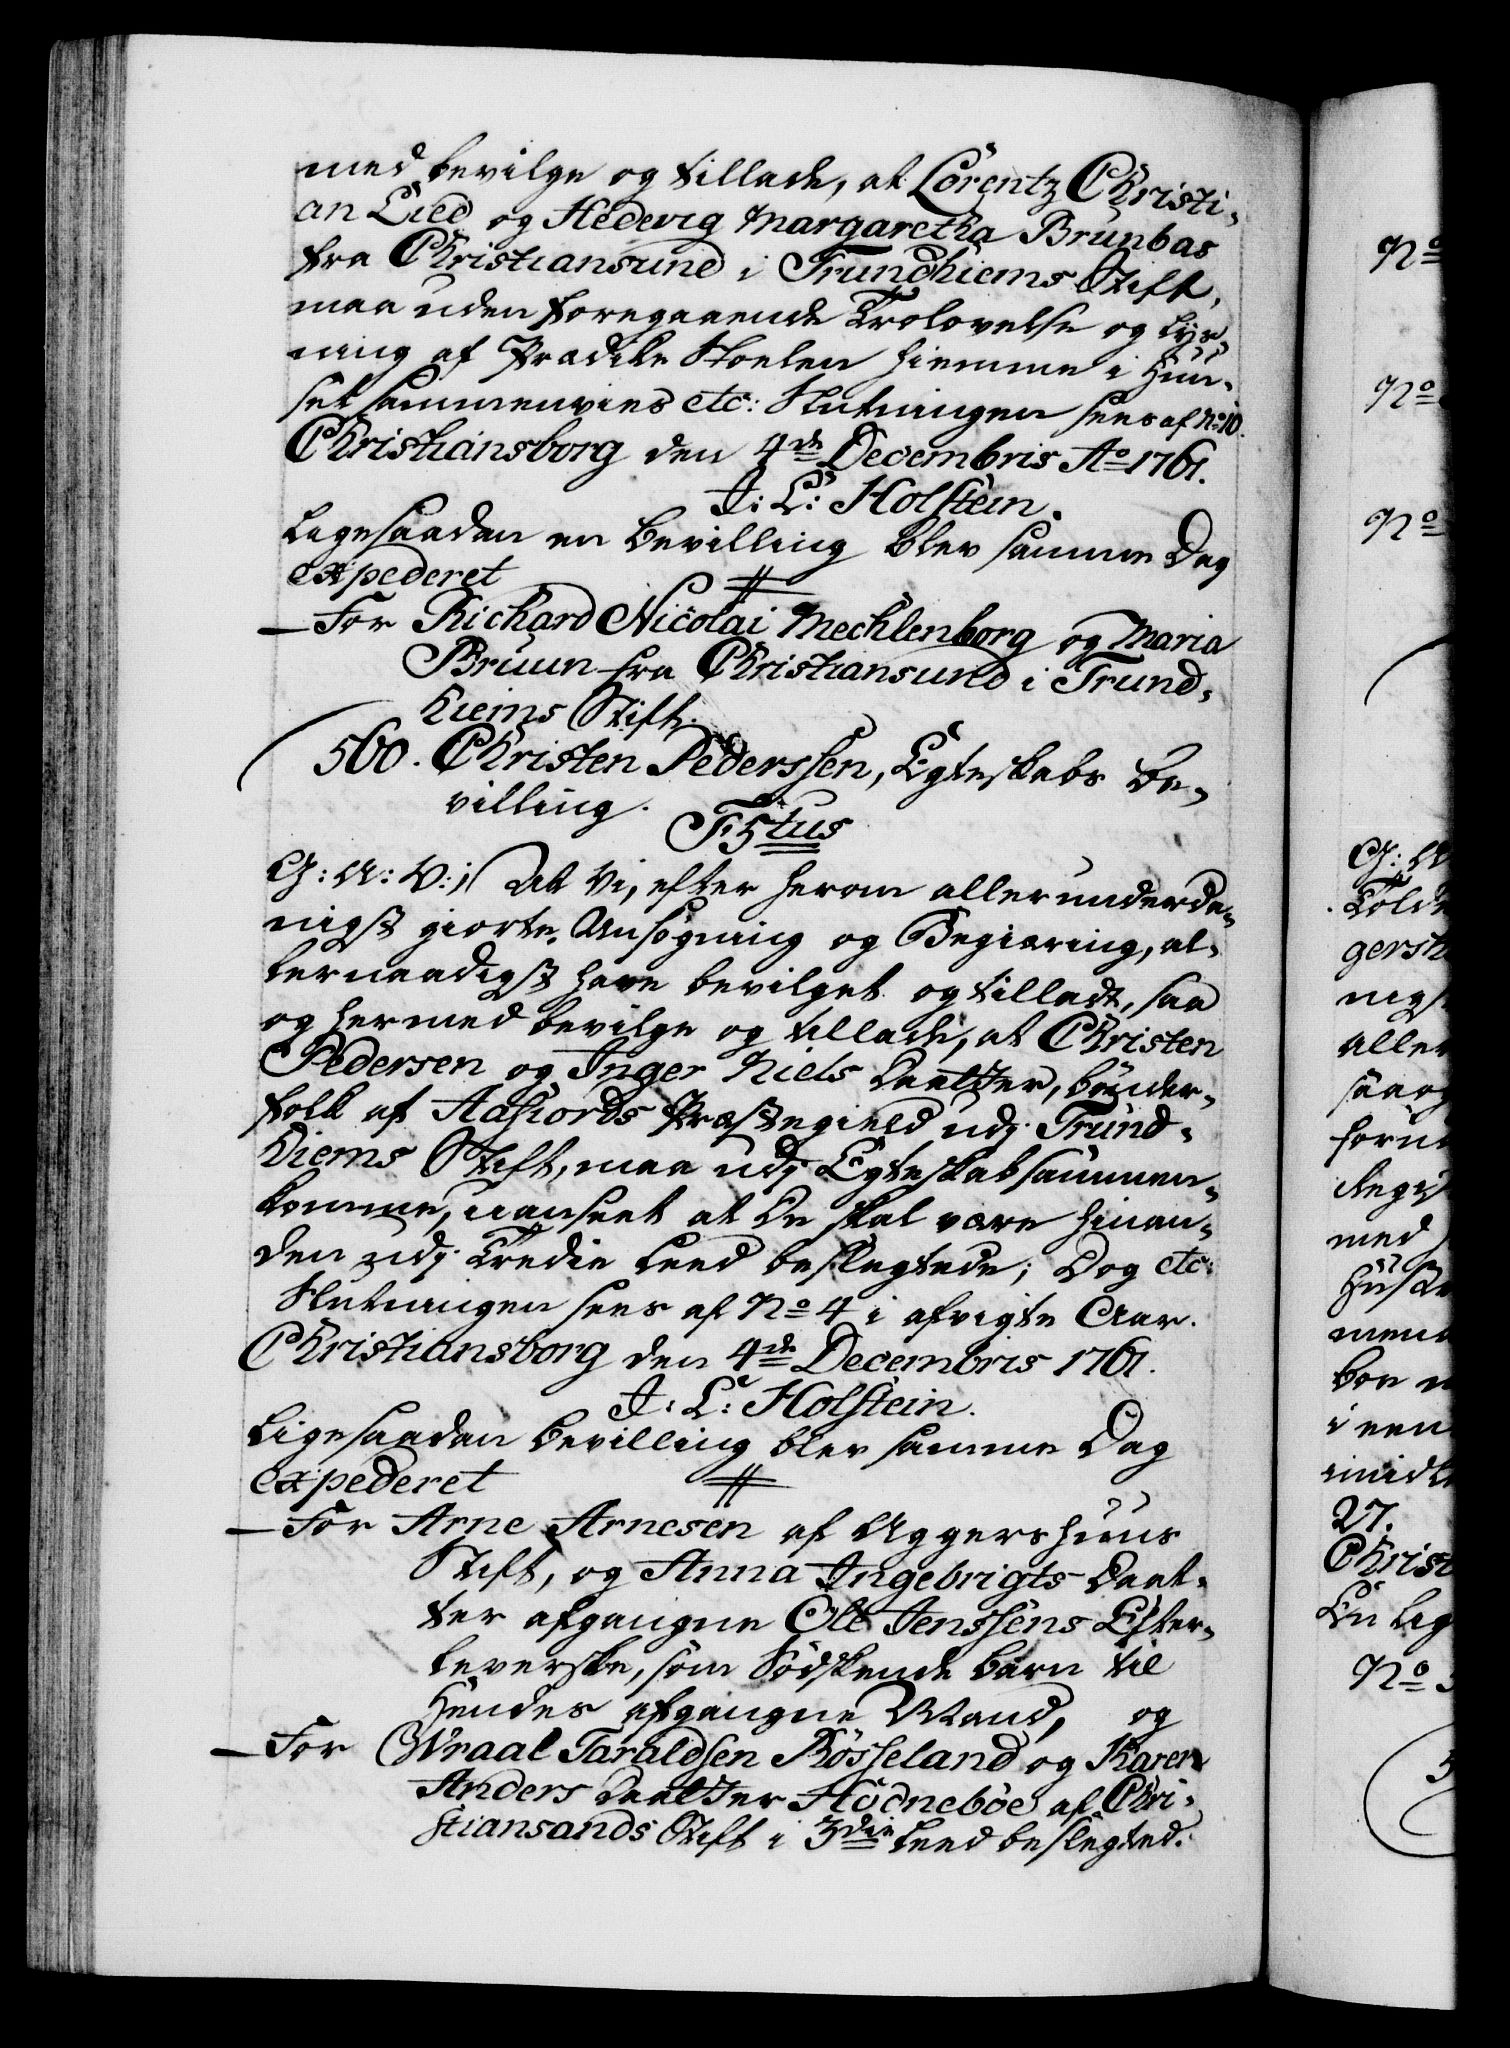 med bevilge og tillade, at Lorentz Christi-
an Lied og Hedevig Margaretha Brunbas
fra Christiansund i Trundhiems Stift,
maa uden foregaaende Trolovelse og Lys-
ning af Prædike Stoelen hiemme i Huu-
set sammenvies etc: Slutningen sees af No. 10.
Christiansborg den 4de Decembris Ao 1761.
J: L: Holstein.
Ligesaadan en Bevilling blev samme Dag
expederet
— For Richard Nicolai Mechlenborg og Maria
Bruun fra Christiansund i Trund-
hiems Stift.
560. Christen Pederssen, Egteskabs Be-
villing.
F: 5tus
G: A: V:, At Vi, efter herom allerunderda-
nigst giorte Ansøgning og Begiæring, al-
lernaadigst have bevilget og tilladt, saa
og hermed bevilge og tillade, at Christen
Pedersen og Inger Niels Daatter, bønder-
folk af Aafiords Præstegield udj Trund-
hiems Stift, maa udj Egteskab sammen-
komme, uanseet at De skal være hinan-
den udj Tredie Leed beslegtede; Dog etc:
Slutningen sees af No 4 i afvigte Aar.
Christiansborg den 4de Decembris 1761.
J: L: Holstein.
Ligesaadan Bevilling blev samme Dag
expederet
— For Arne Arnesen af Aggershuus
Stift, og Anna Ingebrigts Daat-
ter afgangne Ole Jenssens Efter-
leverske, som Sødskende barn til
Hendes afgangne Mand, og
— For Wraal Taraldsen Røsseland og Karen
Anders Daatter Hødnebøe af Chri-
stiansands Stift i 3die Leed beslegted.